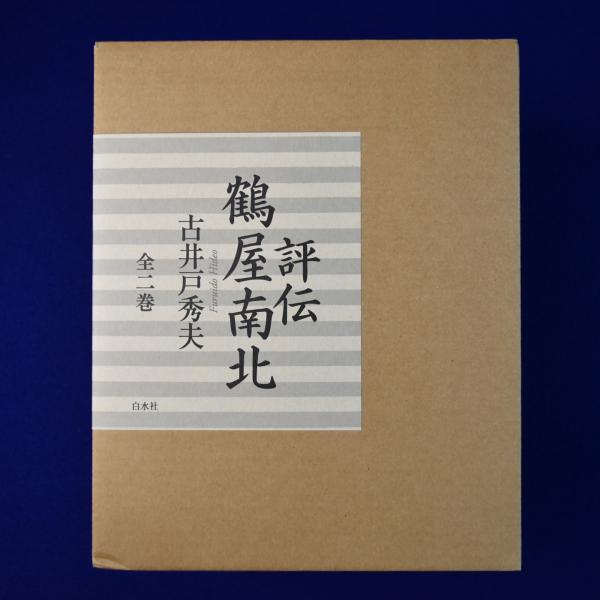 評伝
鶴屋南北
Furuido Hideo
古井戸秀夫
全二巻
白水社